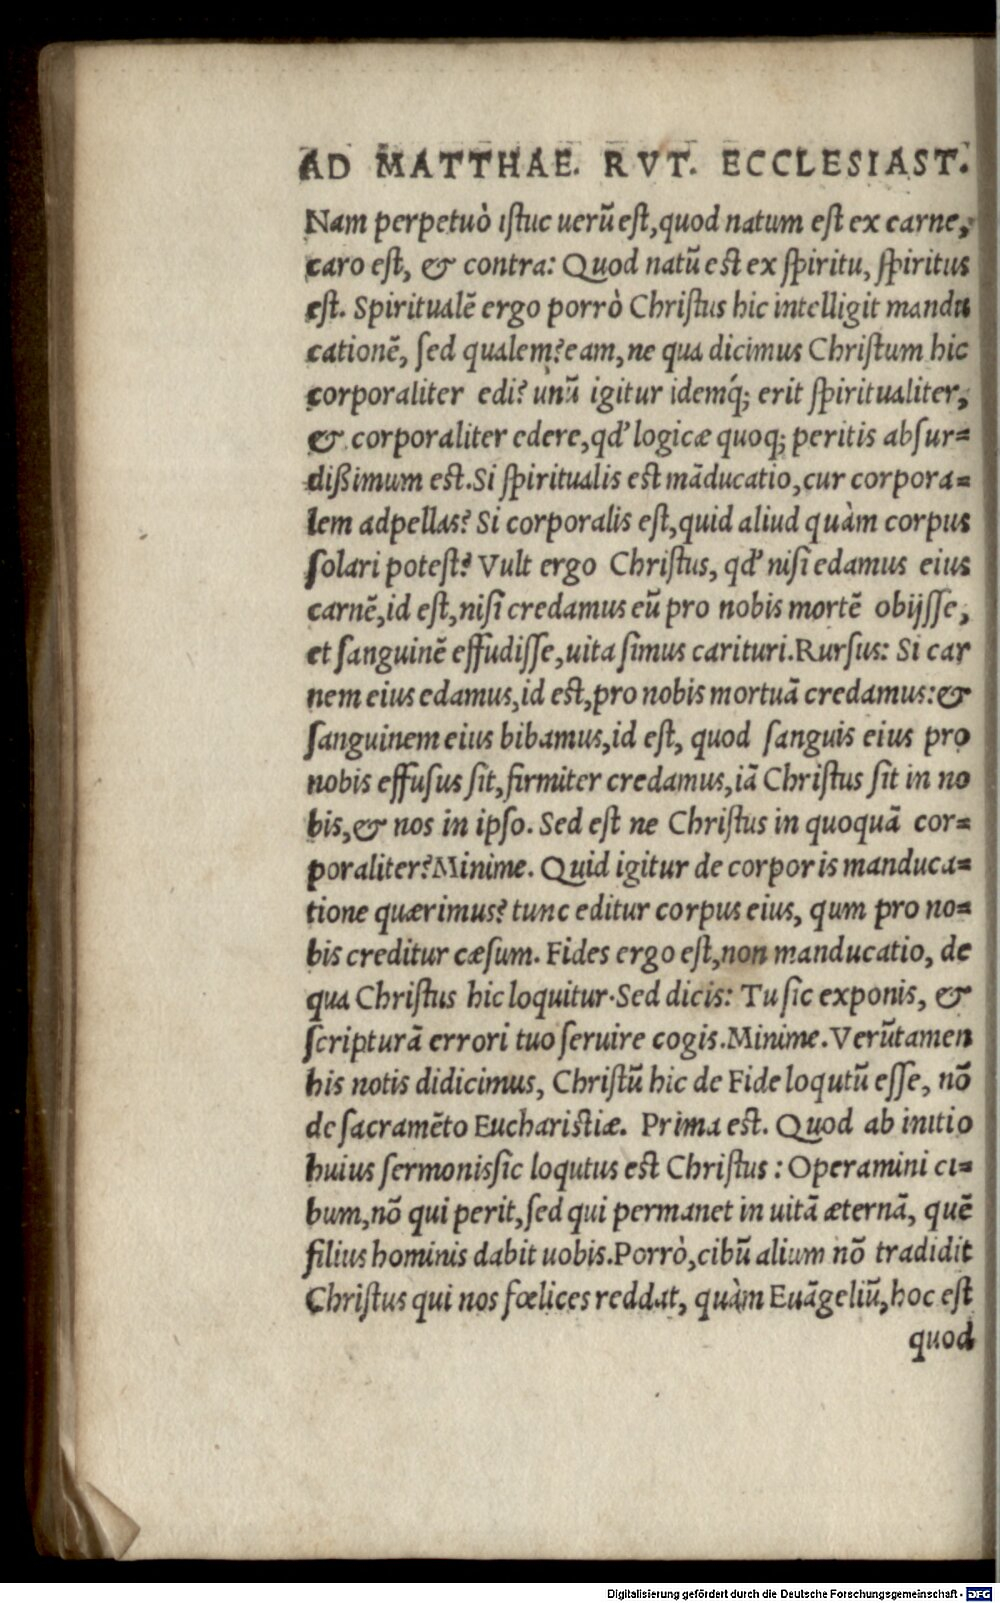 AD MATTHAE. RVT. ECCLESIAST.
Nam perpetuò istuc uerũ est, quod natum est ex carne,
caro est, & contra: Quod natũ est ex spiritu, spiritus
est. Spiritualẽ ergo porrò Christus hic intelligit mandu
cationẽ, sed qualem? eam, ne qua dicimus Christum hic
corporaliter edi? unũ igitur idemq́; erit spiritualiter,
& corporaliter edere, qđ logicæ quoq; peritis absur=
dißimum est. Si spiritualis est mãducatio, cur corpora=
lem adpellas? Si corporalis est, quid aliud quàm corpus
solari potest? Vult ergo Christus, qđ nisi edamus eius
carnẽ, id est, nisi credamus eũ pro nobis mortẽ obijsse,
et sanguinẽ effudisse, uita simus carituri. Rursus: Si car
nem eius edamus, id est, pro nobis mortuã credamus: &
sanguinem eius bibamus, id est, quod sanguis eius pro
nobis effusus sit, firmiter credamus, iã Christus sit in no
bis, & nos in ipso. Sed est ne Christus in quoquã cor=
poraliter? Minime. Quid igitur de corporis manduca=
tione quærimus? tunc editur corpus eius, qum pro no=
bis creditur cæsum. Fides ergo est, non manducatio, de
qua Christus hic loquitur. Sed dicis: Tu sic exponis, &
scripturã errori tuo seruire cogis. Minime. Verũtamen
his notis didicimus, Christũ hic de Fide loqutũ esse, nõ
de sacramẽto Eucharistiæ. Prima est. Quod ab initio
huius sermonis sic loqutus est Christus: Operamini ci=
bum, nõ qui perit, sed qui permanet in uitã æternã, quẽ
filius hominis dabit uobis. Porrò, cibũ alium nõ tradidit
Christus qui nos fœlices reddat, quàm Euãgeliũ, hoc est
quod
Digitalisierung gefördert durch die Deutsche Forschungsgemeinschaft - DFG